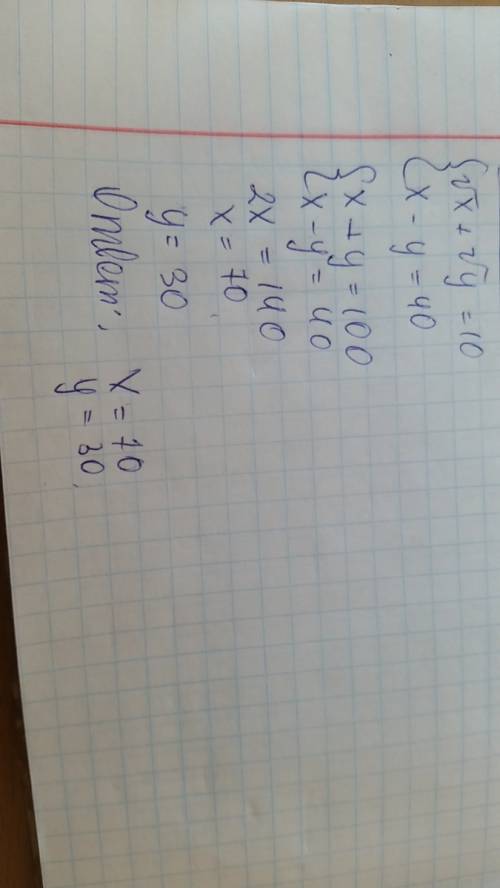 {√x + √y = 10
x - y = 40
{x + y = 100
x - y = 40
2x = 140
x = 70
y = 30
Ответ: x = 70
y = 30